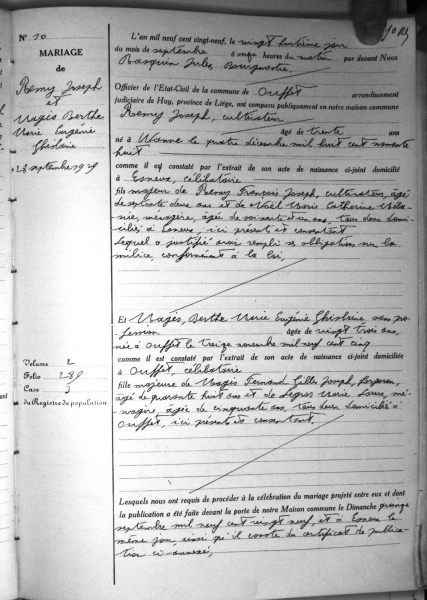 N° 10
MARIAGE
de
Remy Joseph
et
Magés Berthe
Marie Eugénie
Ghislaine
28 septembre 1929
L'an mil neuf cent vingt-neuf, le vingt huitième jour
du mois de septembre à onze heures du matin par devant Nous
Jules, Bourgmestre,
Officier de l'Etat-Civil de la commune de Ouffet arrondissement
judiciaire de Huy, province de Liége, ont comparu publiquement en notre maison commune
Remy Joseph, cultivateur
âgé de trente ans
né à Wanne le quatre décembre mil huit cent nonante
huit
comme il est constaté par l'extrait de son acte de naissance ci-joint domicilié
à Esneux, célibataire
fils majeur de Remy François Joseph, cultivateur, âgé
de septante deux ans et de Noël Marie Catherine Méla-
nie, ménagère, âgée de soixante et un ans, tous deux domi-
ciliés à Esneux, ici présents et consentant
Lequel a justifié avoir rempli ses obligations sur la
milice, conformément à la loi,
Et Magés, Berthe Marie Eugénie Ghislaine sans pro-
fession âgée de vingt trois ans,
née à Ouffet le treize novembre mil neuf cent cinq
comme il est constaté par l'extrait de son acte de naissance ci-joint domiciliée
à Ouffet, célibataire
fille majeure de Magés Fernand Gilles Joseph, forgeron,
âgé de quarante huit ans et de Legros Marie Laure, mé-
nagère, âgée de cinquante ans, tous deux domiciliés à
Ouffet, ici présents et consentant.
Volume 2
Folio 281
Case 3
du Registre de population
Lesquels nous ont requis de procéder à la célébration du mariage projeté entre eux et dont
la publication a été faite devant la porte de notre Maison commune le Dimanche quinze
septembre mil neuf cent vingt neuf, et à Esneux le
même jour, ainsi qu'il conste du certificat de publica-
tion ci annexé,